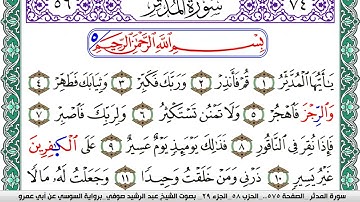 ٥٦ سُورَةُ الْمُدَّثِّرِ ٧٤
بِسْمِ اللَّهِ الرَّحْمَٰنِ الرَّحِيمِ
يَا أَيُّهَا الْمُدَّثِّرُ ١ قُمْ فَأَنذِرْ ٢ وَرَبَّكَ فَكَبِّرْ ٣ وَثِيَابَكَ فَطَهِّرْ ٤
وَالرِّجْزَ فَاهْجُرْ ٥ وَلَا تَمْنُن تَسْتَكْثِرُ ٦ وَلِرَبِّكَ فَاصْبِرْ ٧
فَإِذَا نُقِرَ فِي النَّاقُورِ ٨ فَذَٰلِكَ يَوْمَئِذٍ يَوْمٌ عَسِيرٌ ٩ عَلَى الْكَٰفِرِينَ
غَيْرُ يَسِيرٍ ١٠ ذَرْنِي وَمَنْ خَلَقْتُ وَحِيدًا ١١ وَجَعَلْتُ لَهُ مَالًا
سورة المدثر . الصفحة ٥٧٥ .. الحزب ٥٨ الجزء ٢٩ . بصوت الشيخ عبد الرشيد صوفي برواية السوسي عن أبي عمرو